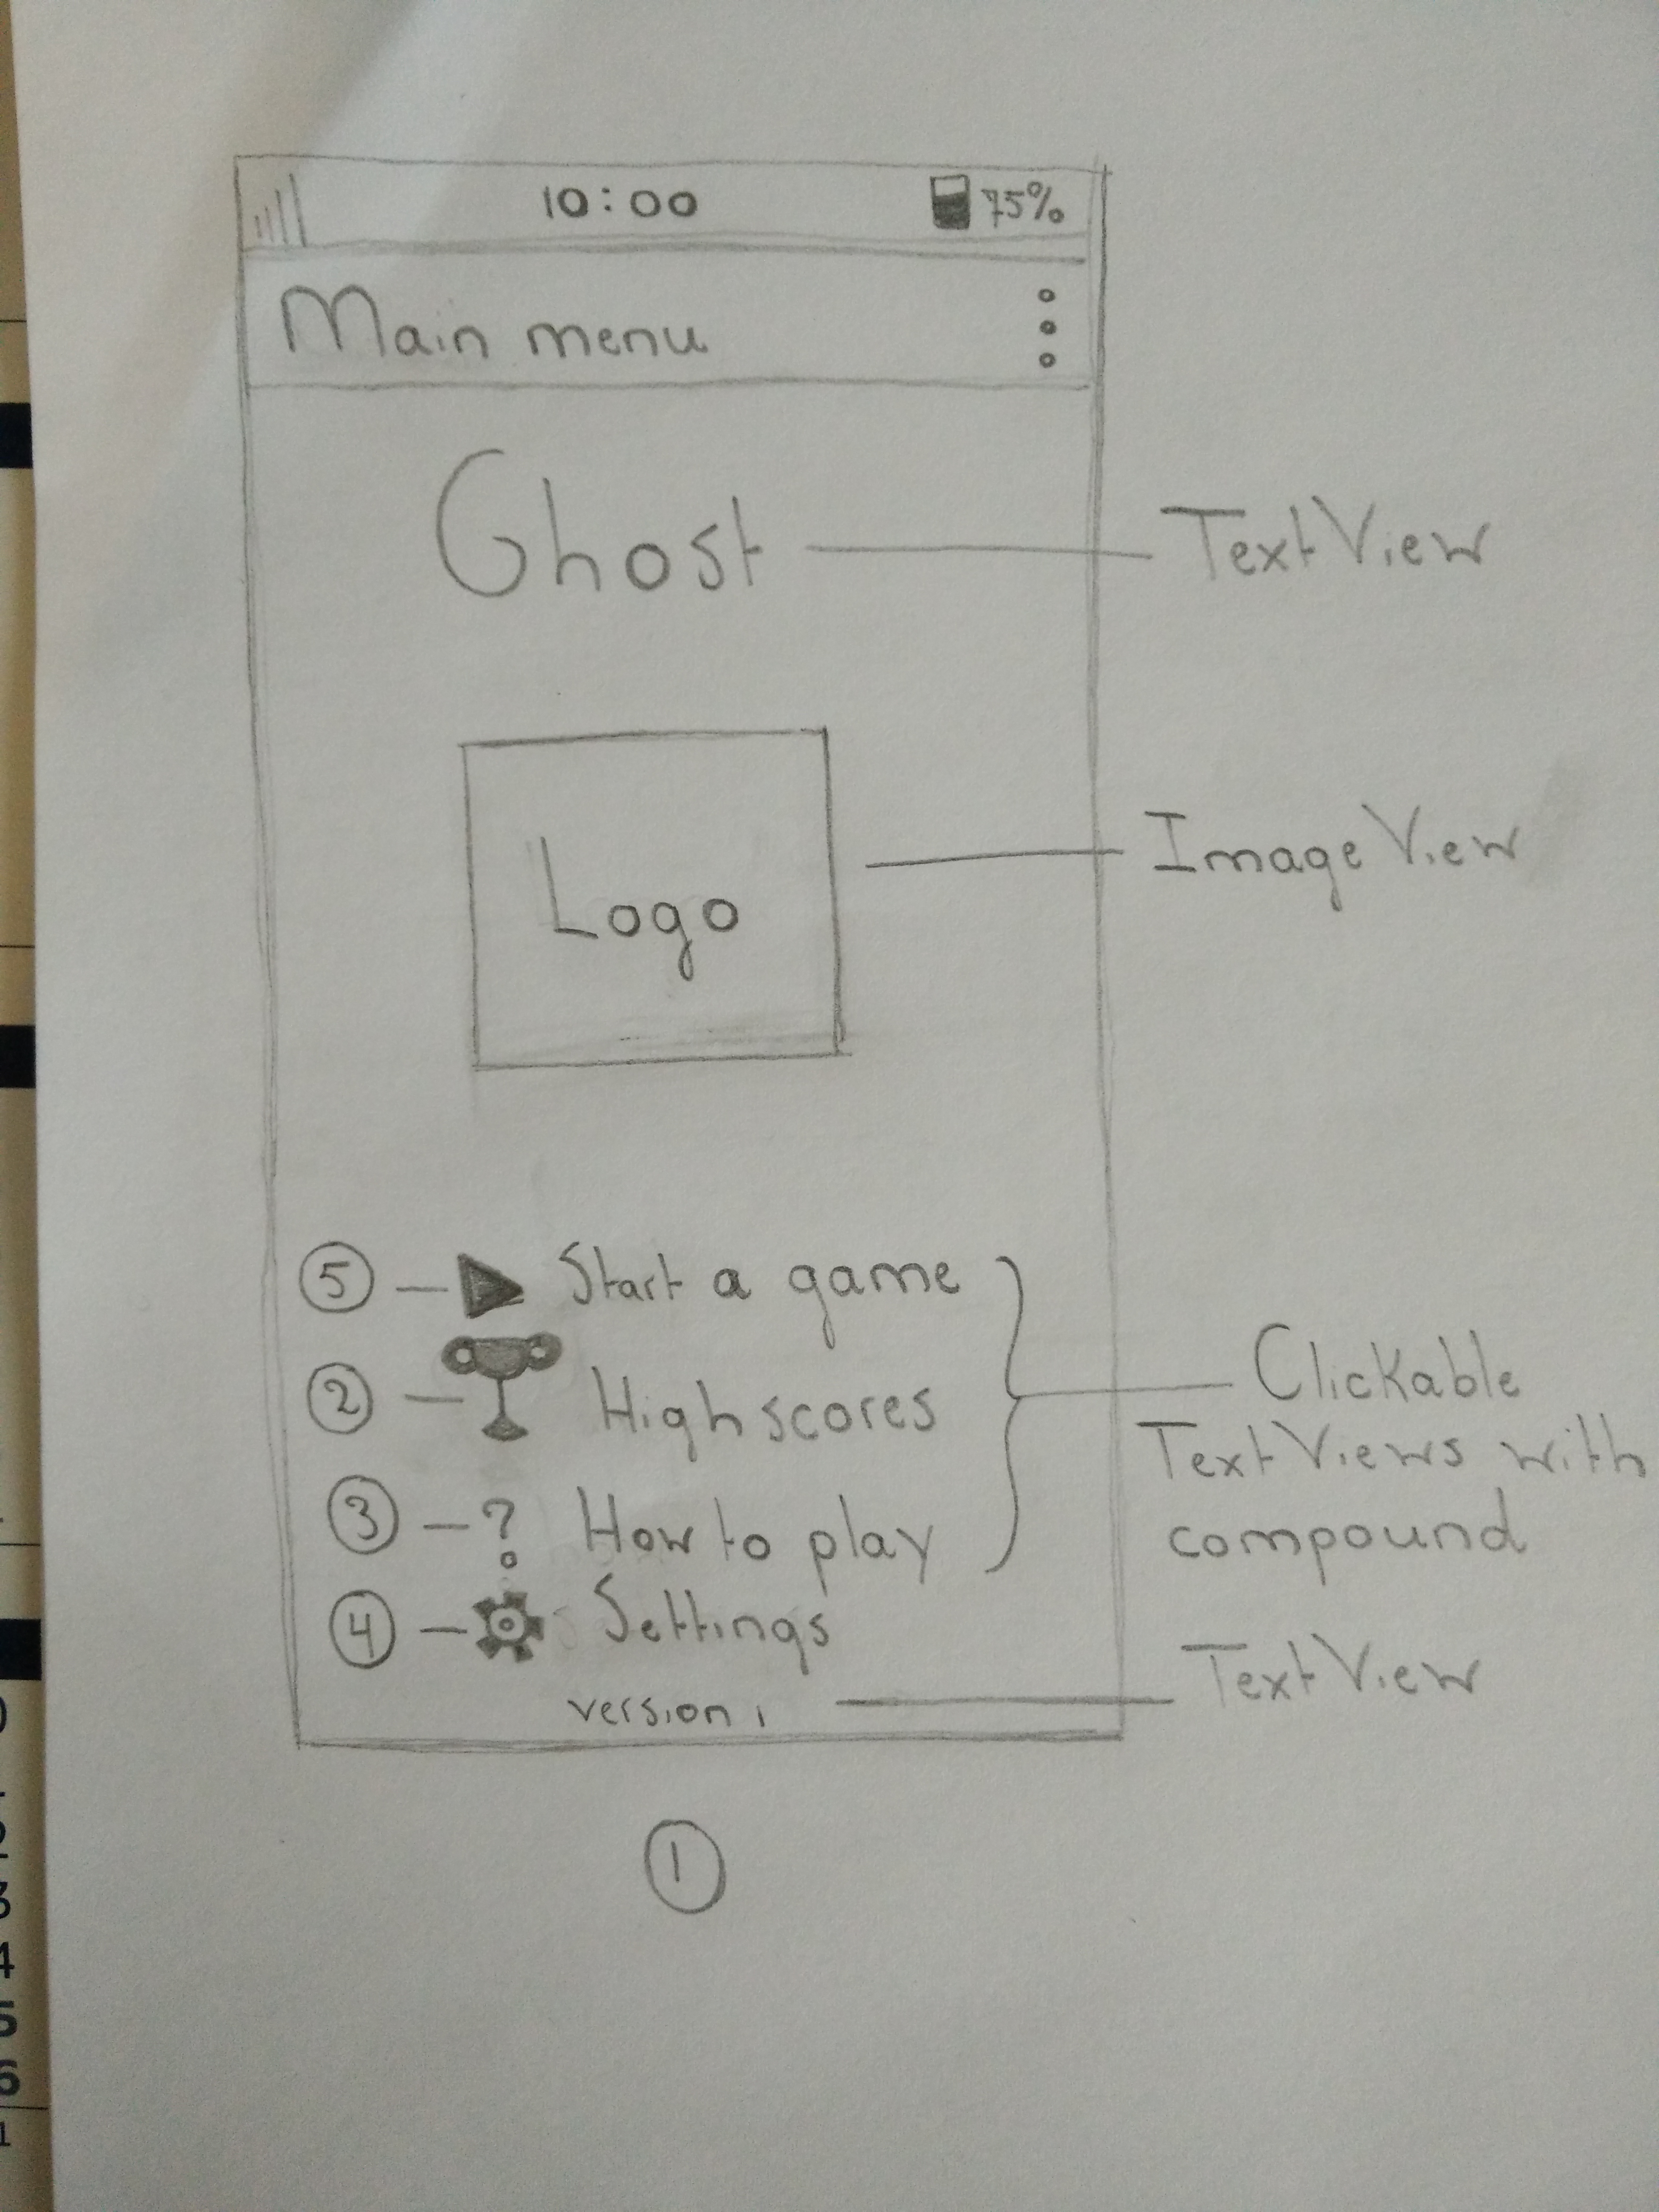 10:00 75%
Main menu
Ghost TextView
Logo ImageView
5 Start a game
2 Highscores
3 How to play
4 Settings
Clickable
TextViews with
compound
version 1 TextView
1
3
4
5
6
1